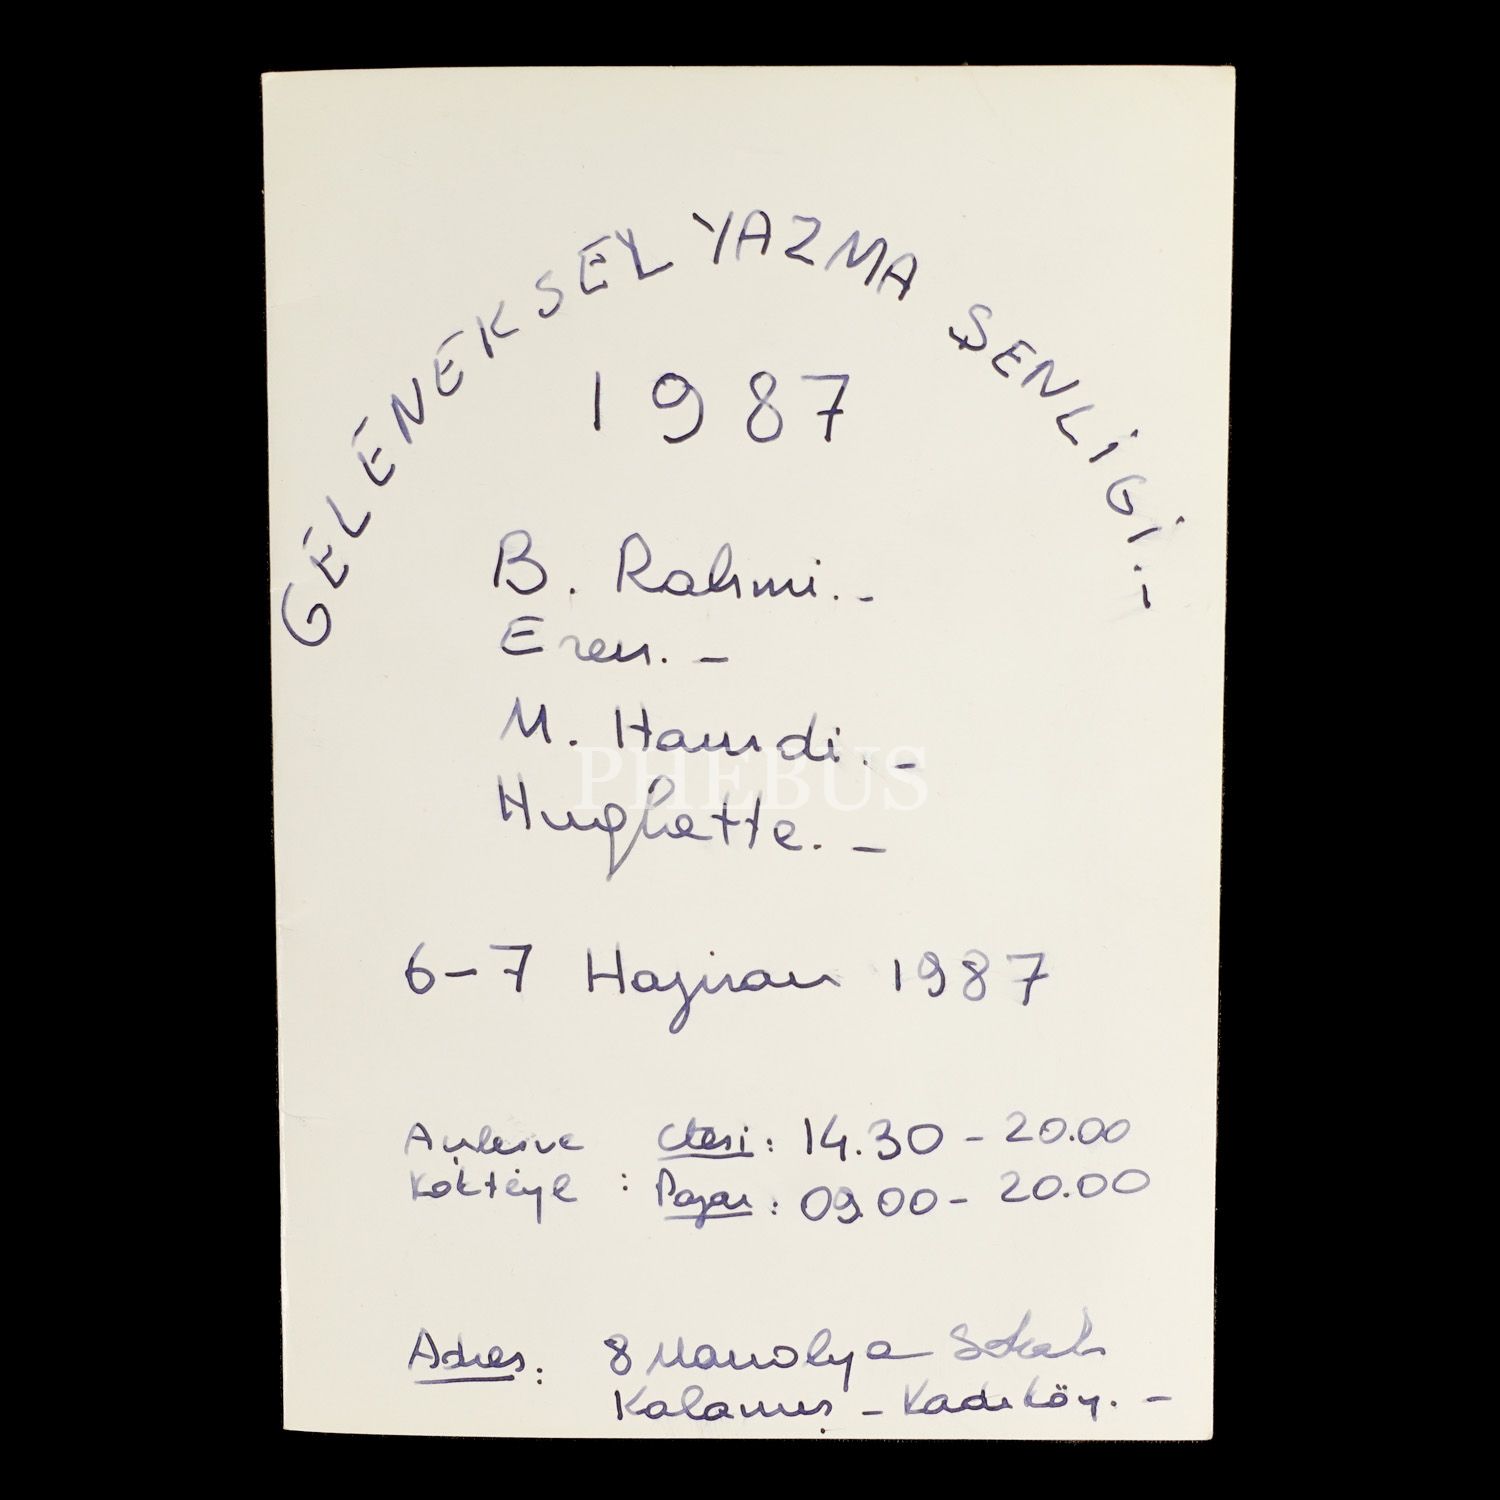 GELENEKSEL YAZMA ŞENLİGİ..
1987
B. Rahmi. -
Eren. -
M. Hamdi. -
Hughette. -
PHEBUS
6-7 Haziran 1987
Açılış ve Ctesi: 14.30 - 20.00
Kokteyl : Pazar: 09.00 - 20.00
Adres: 8 Manolya Sokak
Kalamış - Kadıköy. -